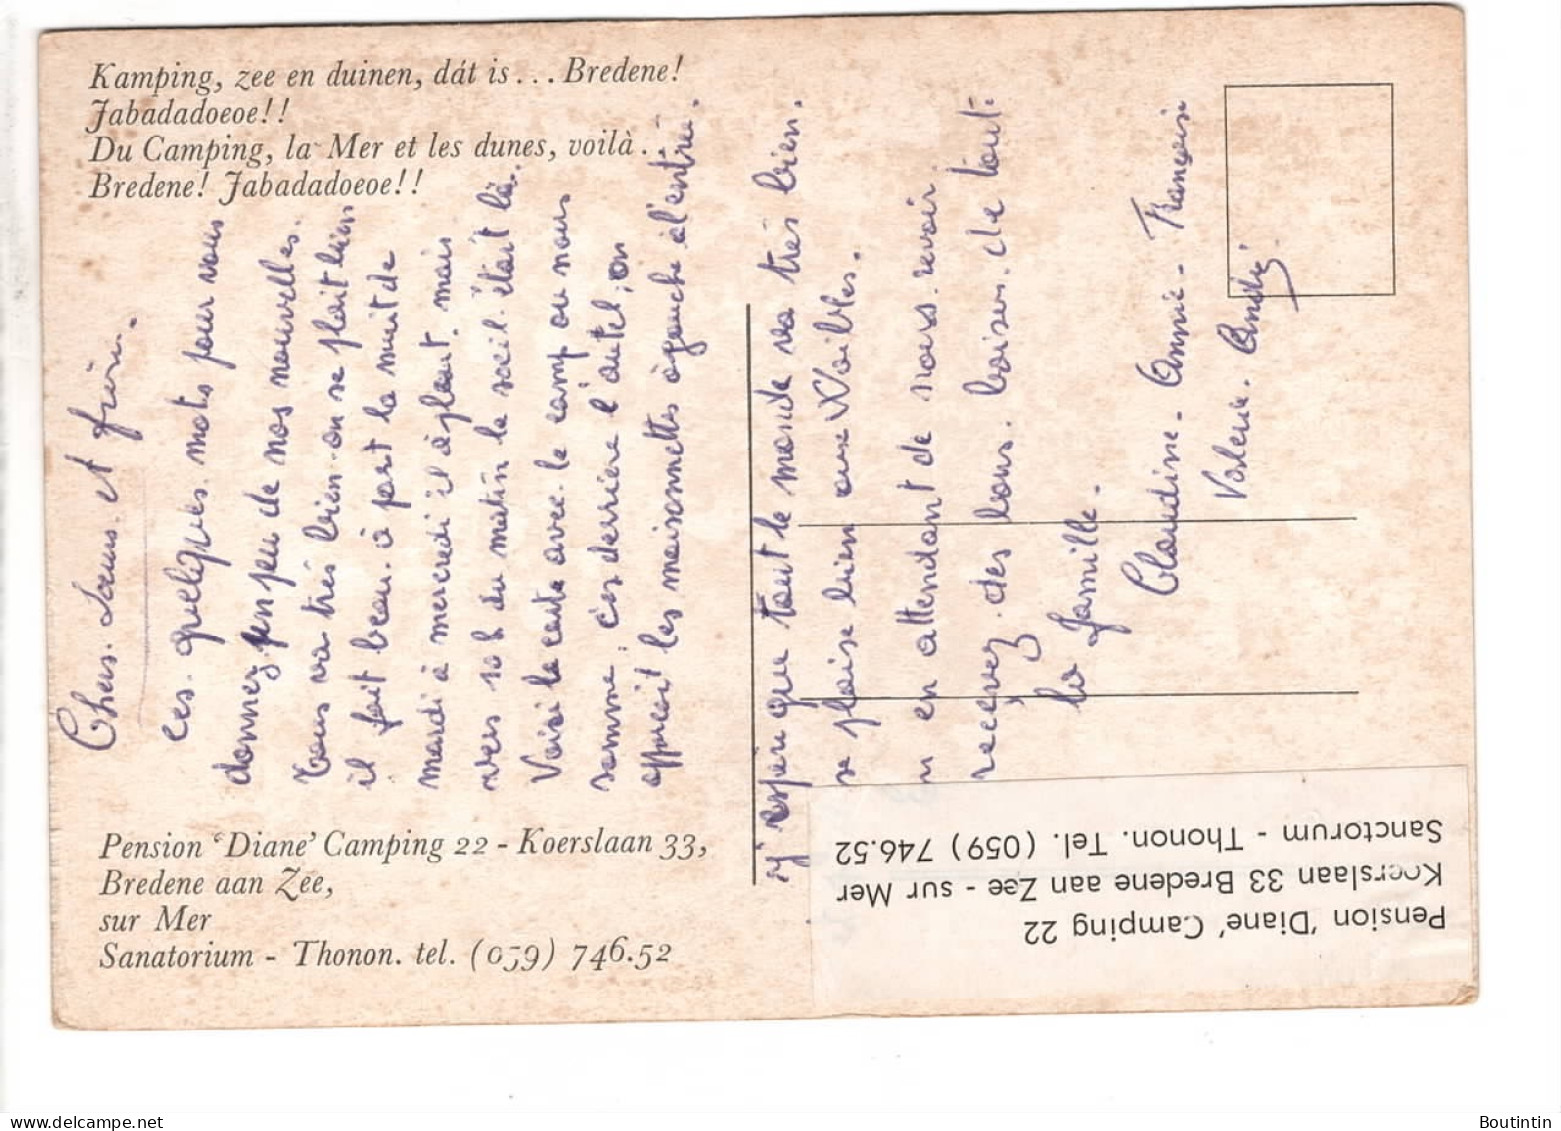 Kamping, zee en duinen, dát is... Bredene!
Jabadadoeoe!!
Du Camping, la Mer et les dunes, voilà...
Bredene! Jabadadoeoe!!
Chers. Sœurs et frère.
ces. quelques. mots pour vous
donnez un peu de nos nouvelles.
tous va très bien on se plait bien
il fait beau. à part la nuit de
mardi à mercredi il à pleut. mais
vers 10 h du matin le soeil. était là.
Voisi la carte avec le camp ou nous
somme, c'es derrière l'autel, on
apperçoit les maisonnettes à gauche à l'entrée.
j'espère que tout le monde va très bien.
se plaise bien aux Waibles.
en attendant de nous. revoir.
recevez. des bons. baisers. de toute
la famille.
Claudine. Annie. Françoise
Valerie. André.
Pension 'Diane' Camping 22 - Koerslaan 33,
Bredene aan Zee,
sur Mer
Sanatorium - Thonon. tel. (059) 746.52
Pension 'Diane' Camping 22
Koerslaan 33 Bredene aan Zee - sur Mer
Sanctorum - Thonon. Tel. (059) 746.52
Boutintin